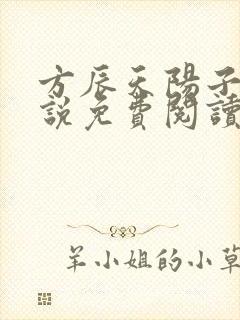 方辰天陽子
說免費閱讀
羊小姐的小草